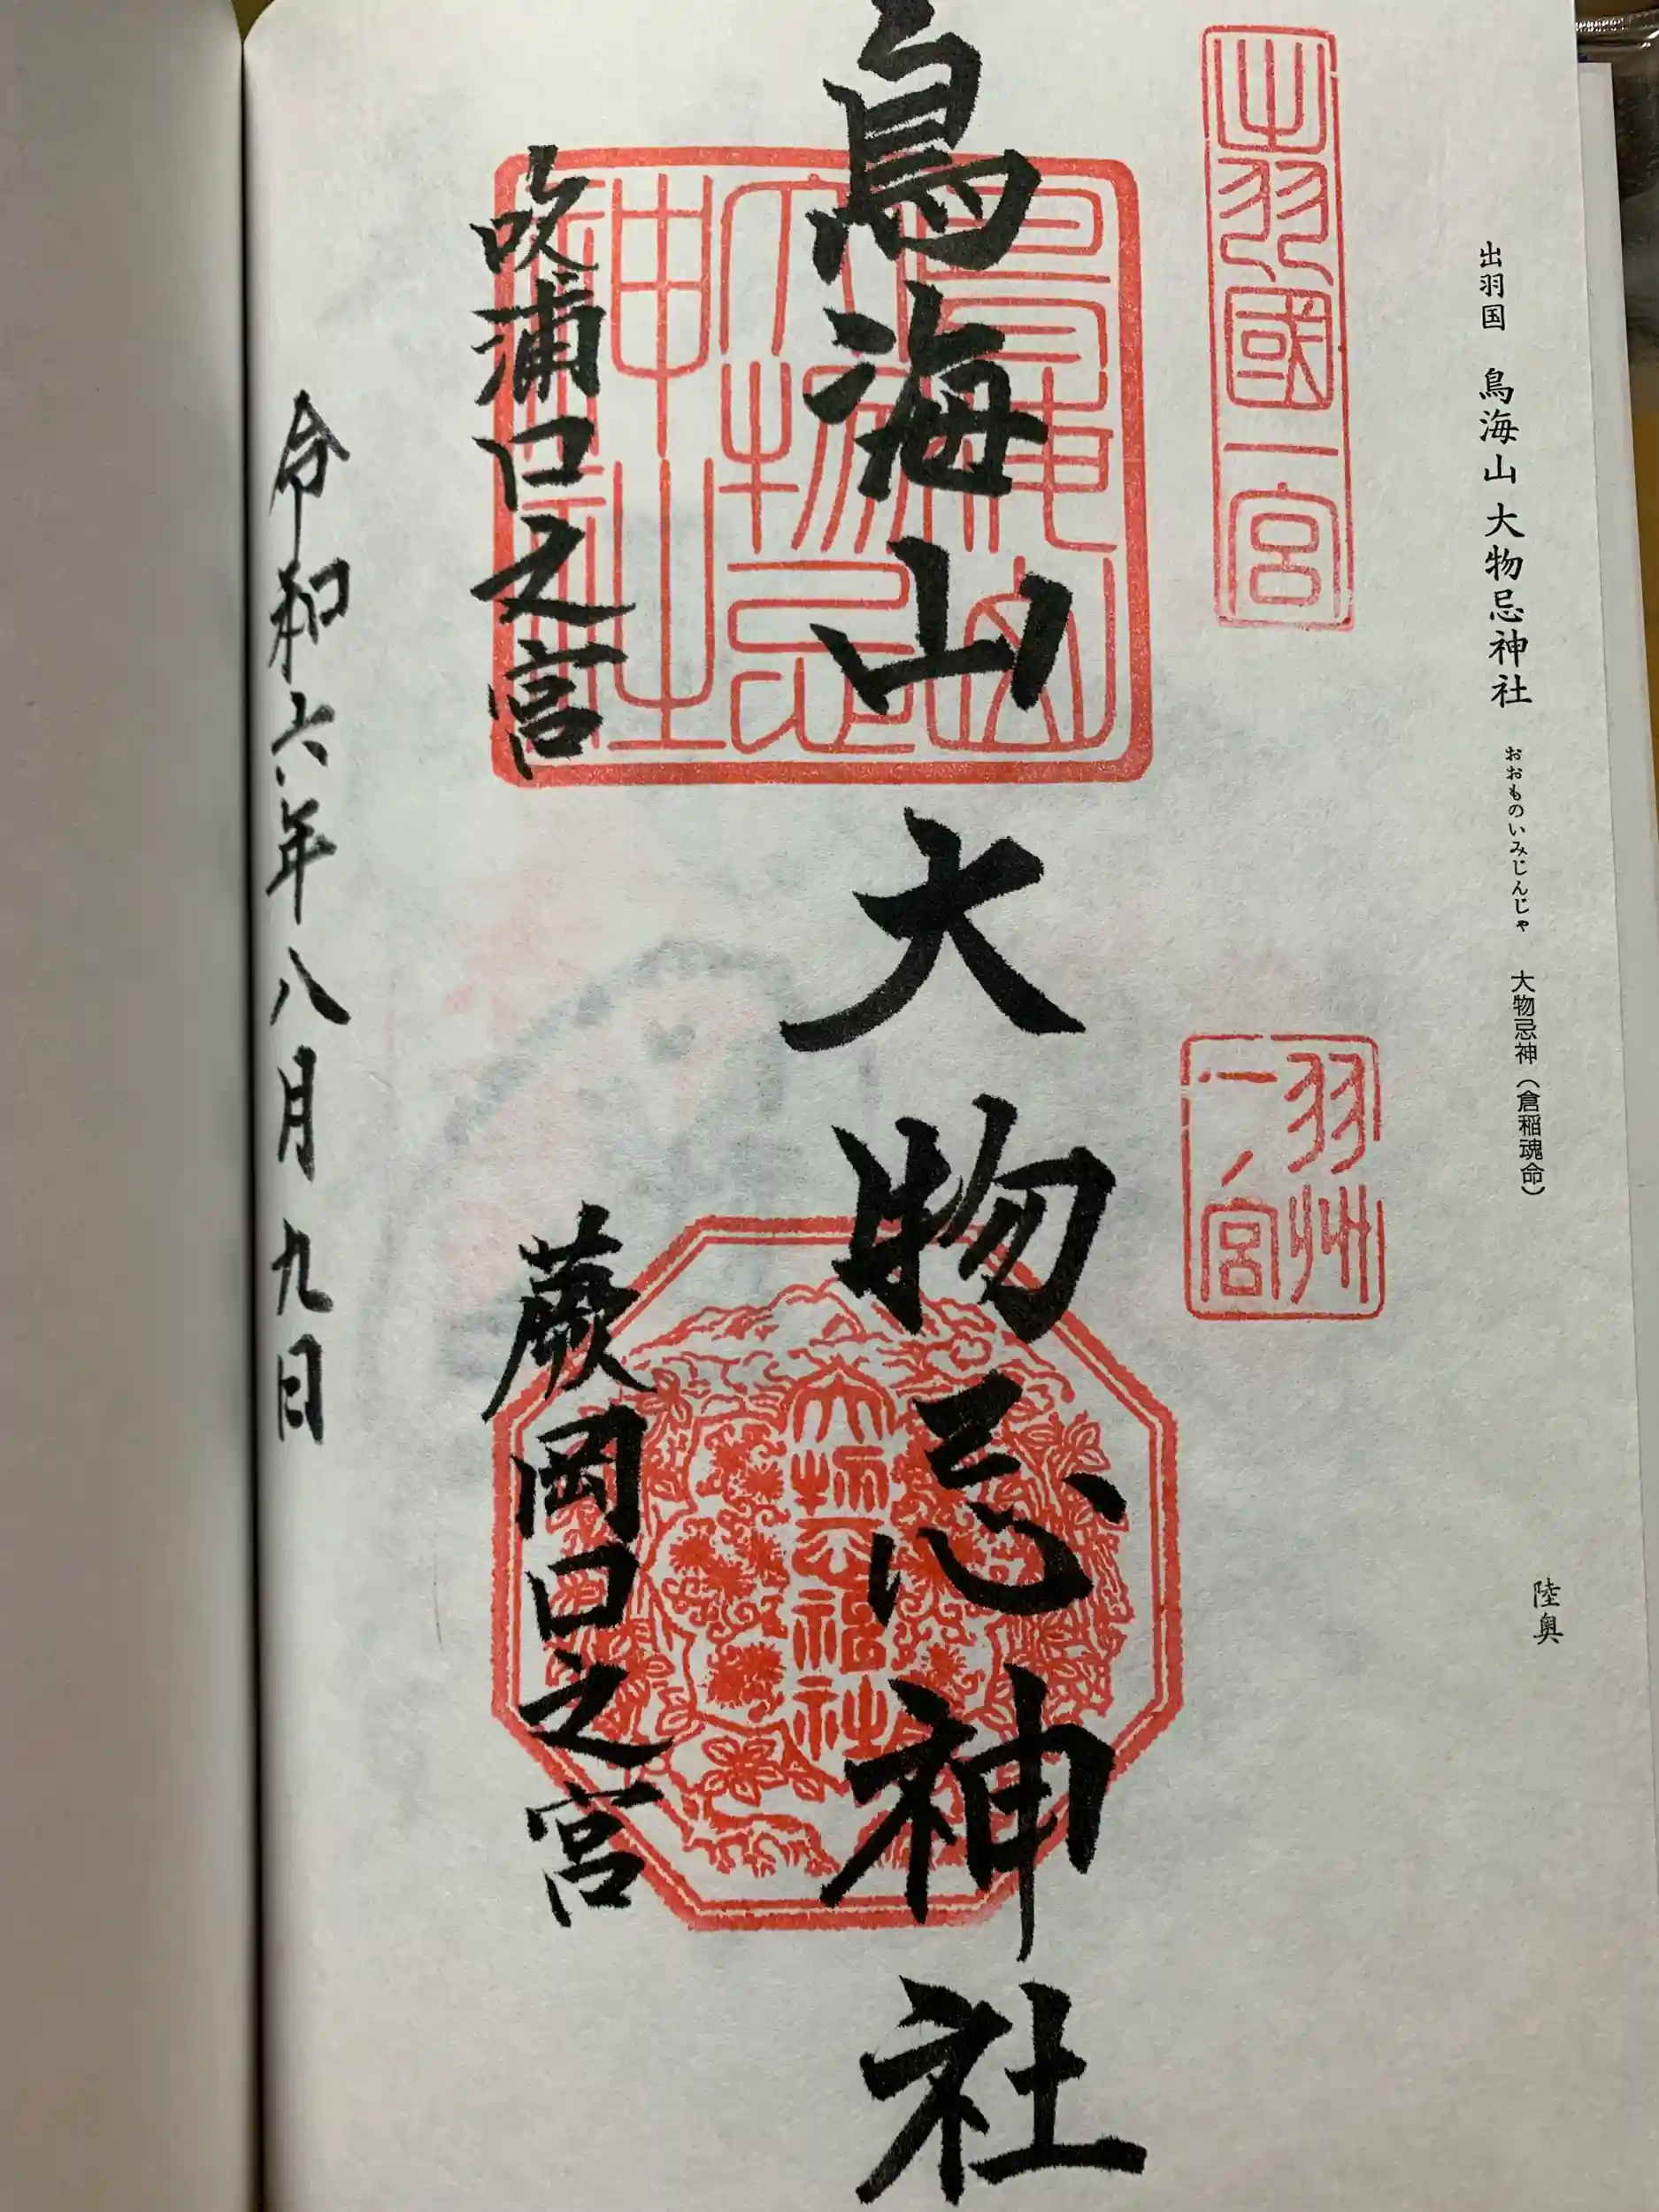 出羽国 鳥海山 大物忌神社 おおものいみじんじゃ 大物忌神（倉稲魂命）
陸奥
出羽國一宮
羽州
一ノ宮
鳥海山大物忌神社
鳥海山
大物忌
神社
大物忌神社
吹浦口之宮
蕨岡口之宮
令和六年八月九日